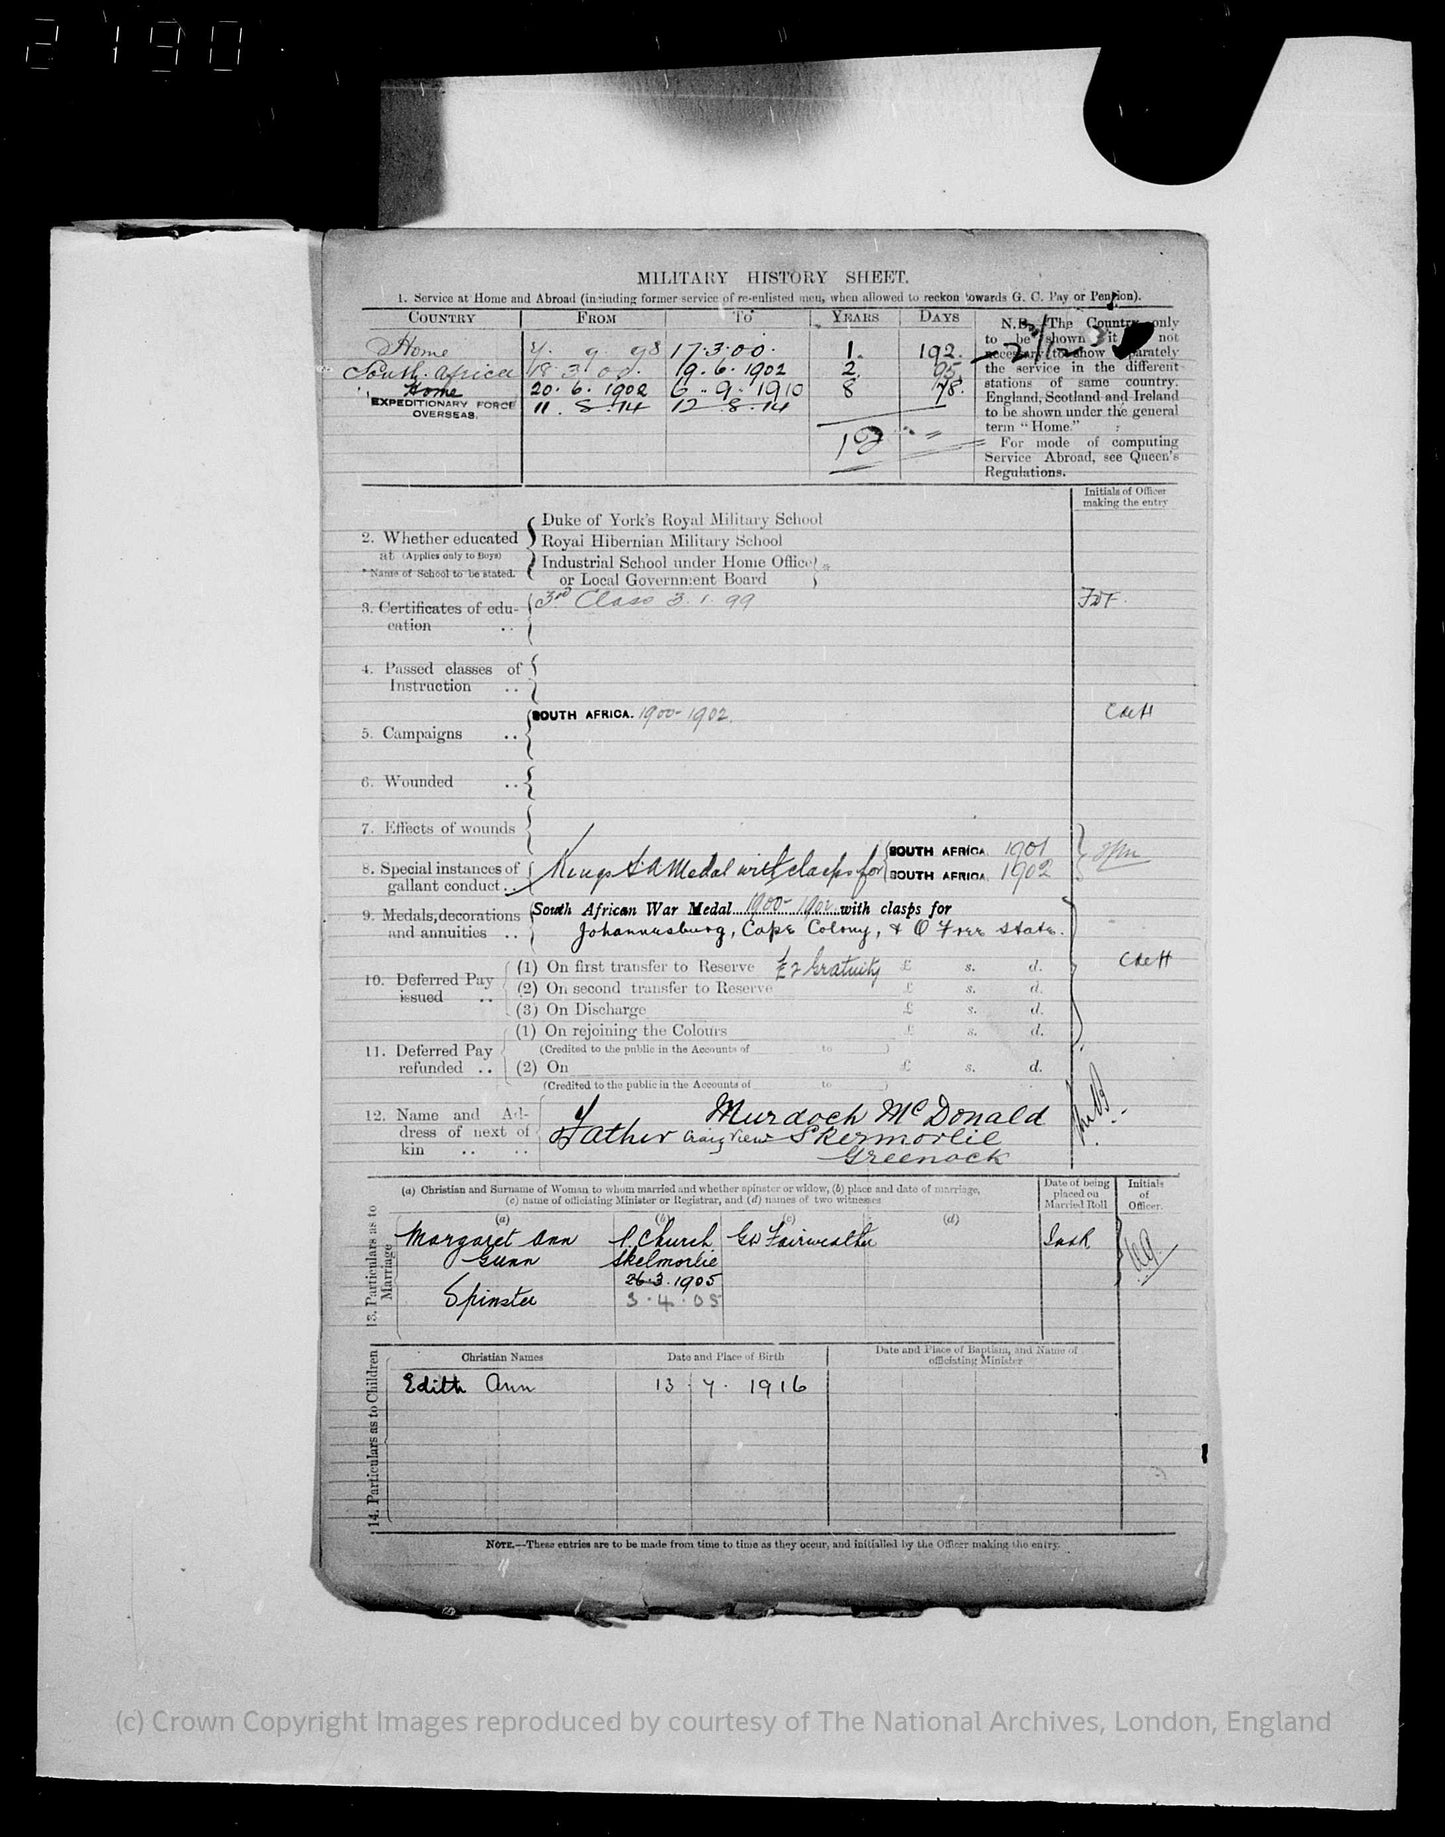 2190
MILITARY HISTORY SHEET.
1. Service at Home and Abroad (including former service of re-enlisted men, when allowed to reckon towards G. C. Pay or Pension).
COUNTRY FROM TO YEARS DAYS
Home 7. 9 98 17.3.00. 1. 192.
South Africa 18 3 00. 19.6.1902 2. 95
Home 20.6.1902 6.9.1910 8 78.
EXPEDITIONARY FORCE
OVERSEAS. 11. 8.14 12.8.14
12 " "
N.B. The Country only
to be shown it not
necessary to show separately
the service in the different
stations of same country.
England, Scotland and Ireland
to be shown under the general
term "Home."
For mode of computing
Service Abroad, see Queen's
Regulations.
Initials of Officer
making the entry
2. Whether educated
at (Applies only to Boys)
*Name of School to be stated.
Duke of York's Royal Military School
Royal Hibernian Military School
Industrial School under Home Office
or Local Government Board *
3. Certificates of edu-
cation ..
3rd Class 3.1.99
4. Passed classes of
Instruction ..
5. Campaigns ..
SOUTH AFRICA. 1900-1902.
6. Wounded ..
7. Effects of wounds
8. Special instances of
gallant conduct..
Kings S.A Medal with clasps for
SOUTH AFRICA. 1901
SOUTH AFRICA. 1902
9. Medals, decorations
and annuities ..
South African War Medal 1900-1902 with clasps for
Johannesburg, Cape Colony, & O Free State.
10. Deferred Pay
issued ..
(1) On first transfer to Reserve £2 Gratuity £ s. d.
(2) On second transfer to Reserve £ s. d.
(3) On Discharge £ s. d.
11. Deferred Pay
refunded ..
(1) On rejoining the Colours £ s. d.
(Credited to the public in the Accounts of to )
(2) On £ s. d.
(Credited to the public in the Accounts of to )
12. Name and Ad-
dress of next of
kin .. ..
Murdoch McDonald
Father Craig View Skermorlie
Greenock
13. Particulars as to Marriage
(a) Christian and Surname of Woman to whom married and whether spinster or widow, (b) place and date of marriage,
(c) name of officiating Minister or Registrar, and (d) names of two witnesses
Date of being
placed on
Married Roll
Initials
of
Officer.
(a) (b) (c) (d)
Margaret Ann P. Church Geo Fairweather
Gunn Skelmorlie
26.3.1905
Spinster 3.4.05
14. Particulars as to Children
Christian Names Date and Place of Birth Date and Place of Baptism, and Name of
officiating Minister
Edith Ann 13 . 7 . 1916
NOTE.—These entries are to be made from time to time as they occur, and initialled by the Officer making the entry.
(c) Crown Copyright Images reproduced by courtesy of The National Archives, London, England